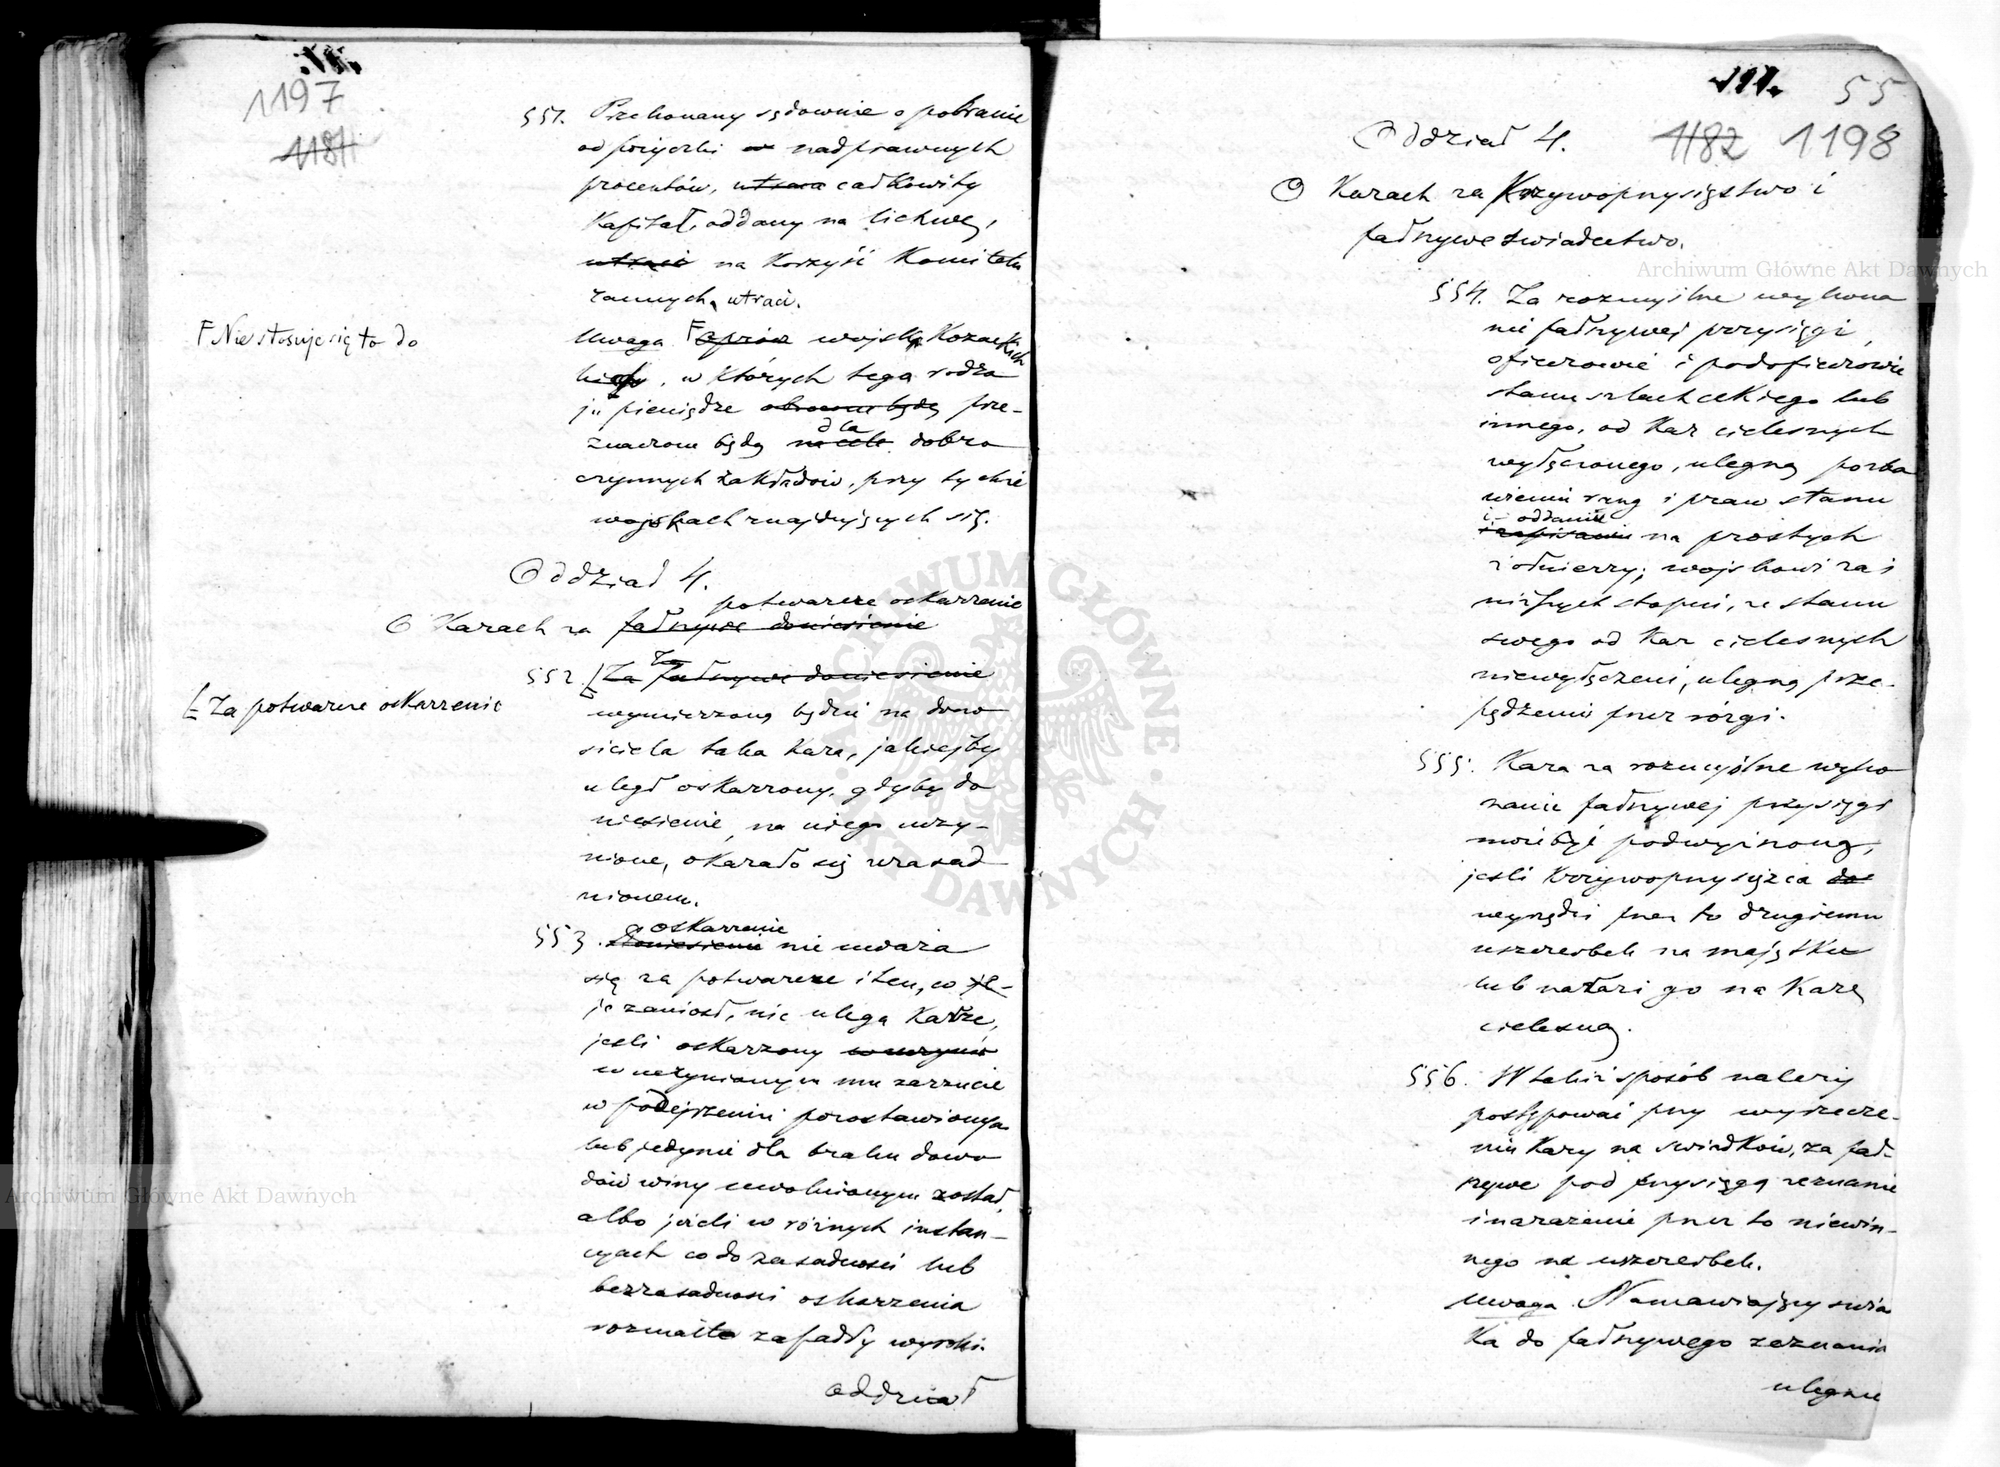 1197
1181
551. Przekonany sądownie o pobranie
od pożyczki nadprawnych
procentów, utraca całkowity
Kapitał, oddany na lichwę,
utraci na Korzyść Komitetu
rannych, utraci.
Γ Nie stosuje się to do
Uwaga Γ oprócz wojsk Kozackich
, w których tego rodza
ju pieniądze obracane będą prze-
znaczone będą na cele dla dobro
czynnych zakładów, przy tychże
wojskach znajdujących się.
Oddział 4.
potwarcze oskarżenie
O Karach za fałszywe doniesienie
552. [Za fałszywe doniesienie
[Za potwarcze oskarżenie
wymierzoną będzie na dono
siciela taka Kara, jakiejby
uległ oskarżony, gdyby do
niesienie, na niego uczy-
nione, okazało się uzasad
nionem.
oskarżenie
553. Doniesienie nie uważa
się za potwarcze i ten, co je
je zaniósł, nie ulega Karze,
jeśli oskarżony w uczynio
w uczynionym mu zarzucie
w podejrzeniu pozostawionym
lub jedynie dla braku dowo
dów winy uwolnionym został,
albo jeżeli w różnych instan-
cyach co do zasadności lub
bezzasadności oskarżenia
rozmaite zapadły wyroki.
Oddział
55
1182 1198
Oddział 4.
O Karach za Krzywoprzysięstwo i
fałszywe świadectwo.
554. Za rozmyślne wykona
nie fałszywej przysięgi,
oficerowie i podoficerowie
stanu szlacheckiego lub
innego, od Kar cielesnych
wyłączonego, ulegną pozba
wieniu rang i praw stanu
i oddaniu
i zapisaniu na prostych
żołnierzy; wojskowi zaś
niższych stopni, ze stanu
swego od Kar cielesnych
niewyłączeni, ulegną prze-
pędzeniu przez rózgi.
555. Kara za rozmyślne wyko
nanie fałszywej przysięgi
może być podwyższoną,
jeśli Krzywoprzysiężca do
wyrządzi przez to drugiemu
uszczerbek na majątku
lub narazi go na Karę
cielesną.
556. W takiż sposób należy
postępować przy wyrzecze-
niu Kary na świadków, za fał-
szywe pod przysięgą zeznanie
i narażenie przez to niewin-
nego na uszczerbek.
Uwaga. Namawiający świa
Ka do fałszywego zeznania
ulegnie
Archiwum Główne Akt Dawnych
Archiwum Główne Akt Dawnych
ARCHIWUM GŁÓWNE · AKT DAWNYCH ·